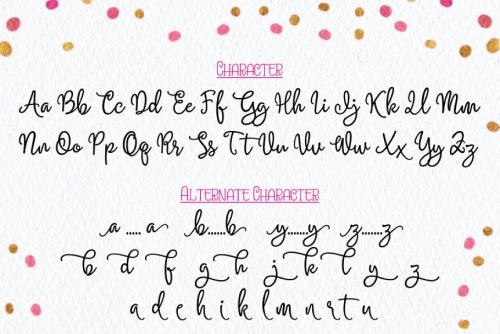 Character
Aa Bb Cc Dd Ee Ff Gg Hh Ii Jj Kk Ll Mm
Nn Oo Pp Qq Rr Ss Tt Uu Vv Ww Xx Yy Zz
Alternate Character
a ..... a b......b y......y z......z
b d f g h j k l y z
a d e h i k l m n r t u